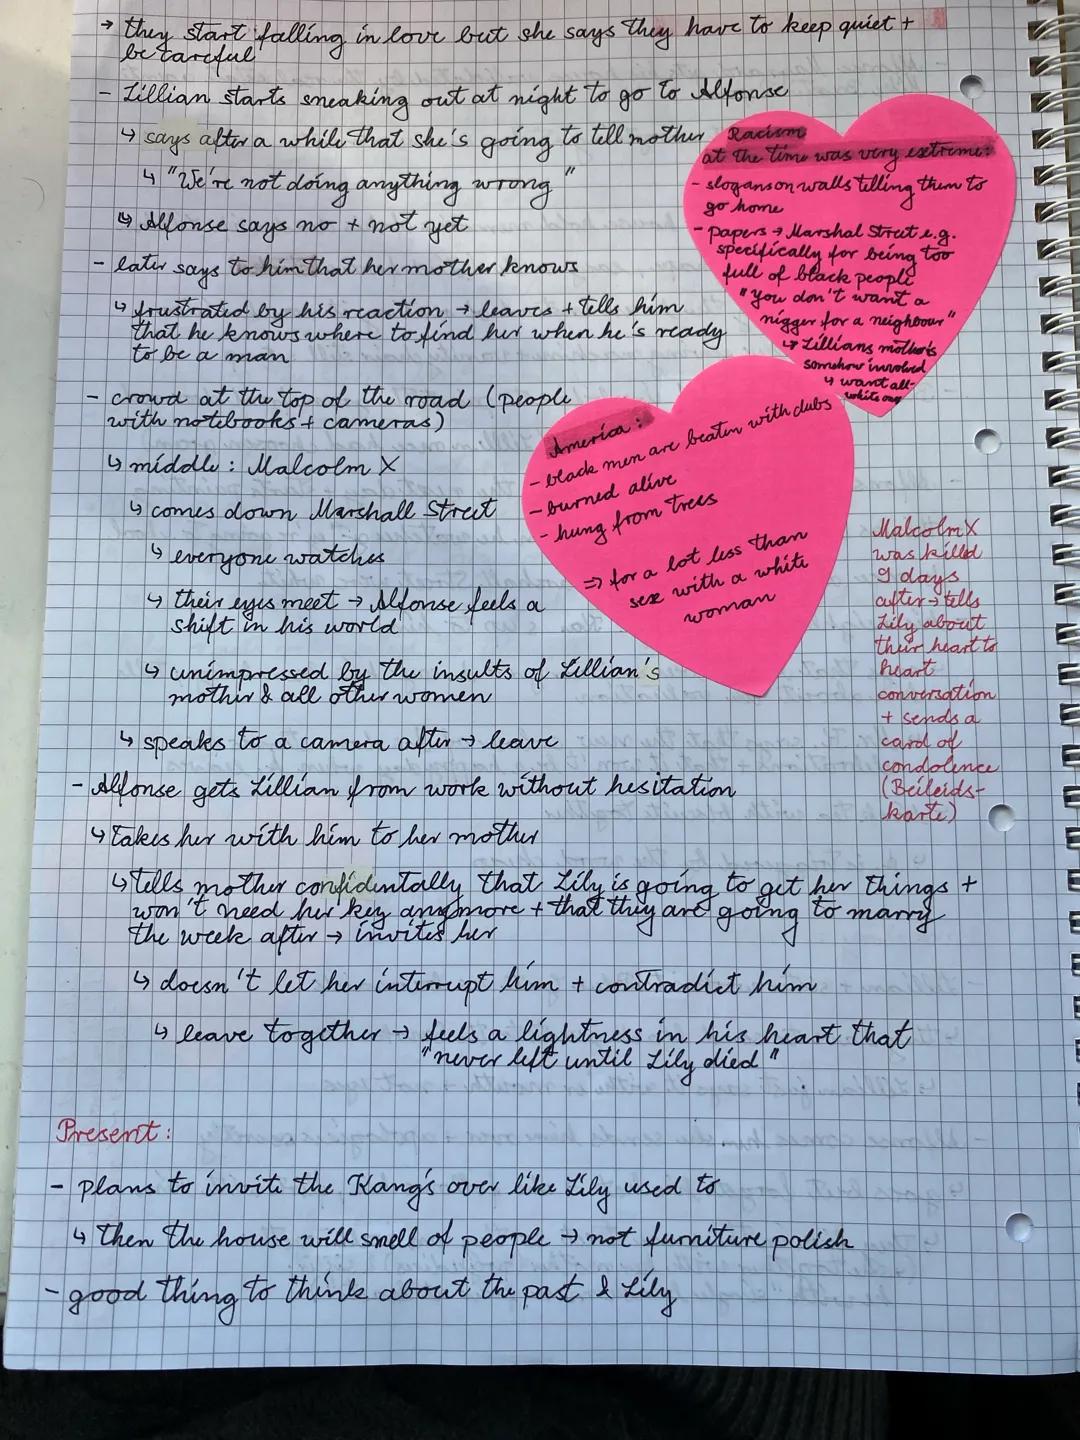 → they start falling in love but she says they have to keep quiet +
be careful
- Lillian starts sneaking out at night to go to Alfonse
↳ says after a while that she's going to tell mother
↳ "We're not doing anything wrong"
↳ Alfonse says no + not yet
- later says to him that her mother knows
↳ frustrated by his reaction → leaves + tells him
that he knows where to find her when he's ready
to be a man
- crowd at the top of the road (people
with notebooks + cameras)
↳ middle: Malcolm X
↳ comes down Marshall Street
↳ everyone watches
↳ their eyes meet → Alfonse feels a
shift in his world
↳ unimpressed by the insults of Lillian's
mother & all other women
↳ speaks to a camera after → leave
- Alfonse gets Lillian from work without hesitation
↳ takes her with him to her mother
↳ tells mother confidentally that Lily is going to get her things +
won't need her key anymore + that they are going to marry
the week after → invites her
↳ doesn't let her interrupt him + contradict him
↳ leave together → feels a lightness in his heart that
"never left until Lily died"
Racism
at the time was very extreme:
- slogans on walls telling them to
go home
- papers → Marshal Street e.g.
specifically for being too
full of black people
"you don't want a
nigger for a neighbour"
↳ Lillians mother's
somehow involved
↳ want all-
white
America:
- black men are beaten with clubs
- burned alive
- hung from trees
⇒ for a lot less than
sex with a white
woman
Malcolm X
was killed
9 days
after → tells
Lily about
their heart to
heart
conversation
+ sends a
card of
condolence
(Beileids-
karte)
Present:
- plans to invite the Kang's over like Lily used to
↳ then the house will smell of people → not furniture polish
- good thing to think about the past & Lily